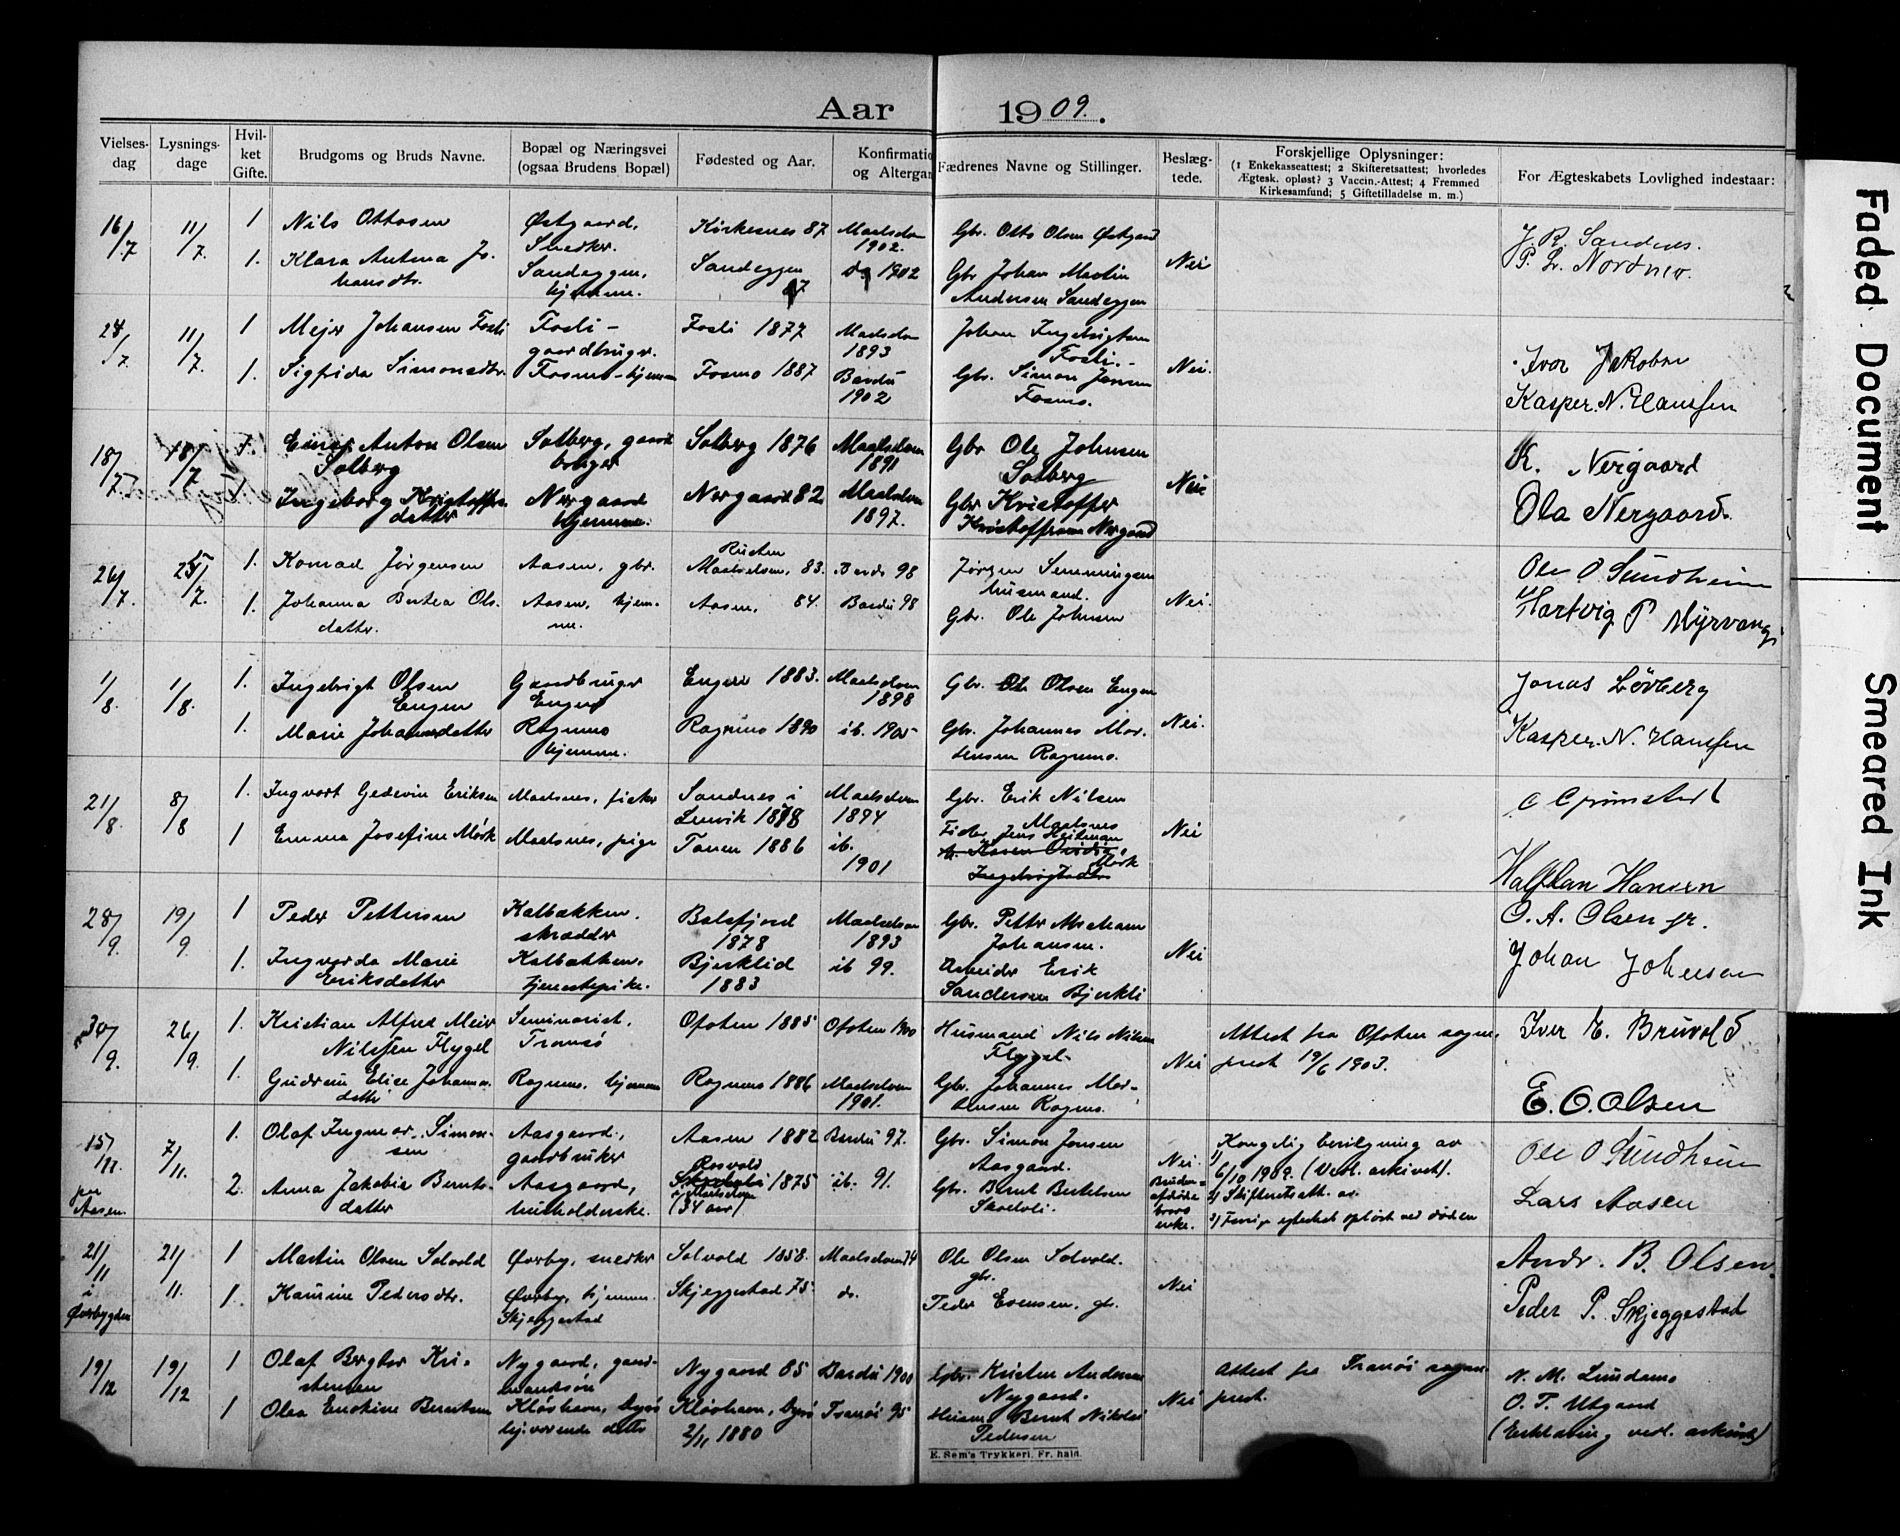 Aar 1909.
Vielses-dag
Lysnings-dage
Hvil-ket Gifte.
Brudgoms og Bruds Navne.
Bopæl og Næringsvei (ogsaa Brudens Bopæl)
Fødested og Aar.
Konfirmatio og Altergan
Fædrenes Navne og Stillinger.
Beslæg-tede.
Forskjellige Oplysninger:
(1 Enkekasseattest; 2 Skifteretsattest; hvorledes
Ægtesk. opløst? 3 Vaccin.-Attest; 4 Fremmed
Kirkesamfund; 5 Giftetilladelse m. m.)
For Ægteskabets Lovlighed indestaar:
16/7 11/7 1 Nils Ottosen Østgaard, Snedker. Kirkesnes 87 Maalselven 1902. Gbr. Otto Olsen Østgaard
1. Klara Antona Johansdtr. Sandeggen, hjemme. Sandeggen 87 do 1902 Gbr Johan Martin Andersen Sandeggen Nei
P. L. Nordmo.
24/7. 11/7. 1 Mejer Johansen Fosli Fosli - gaardbruger. Fosli 1877 Maalselven 1893 Johan Ingebrigtsen Fosli.
1. Sigfrida Simonsdtr. Fosmo - hjemme Fosmo 1887 Bardu 1902 Gbr. Simon Jensen Fosmo. Nei.
Ivar Jakobsen
Kasper. N. Hanssen
18/7 18/7 1. Einar Anton Olsen Solberg Solberg, gaardbruger Solberg 1876 Maalselven 1891 Gbr Ole Johnsen Solberg
Ingeborg Kristoffersdatter Nergaard hjemme. Nergaard 82 Maalselven 1897. Gbr Kristoffer Kristoffersen Nergaard Nei
K. Nergaard
Ola Nergaard.
26/7. 25/7. 1. Konrad Jørgensen Aasen, gbr. Maalselven, 83. Bardu 98 Jørgen Simmingsen husmand.
1. Johanna Bertea Olsdatter. Aasen, hjemme. Aasen, 84. Bardu 98 Gbr. Ole Johnsen Nei.
Ole O Sundheim
Hartvig P Myrvang
1/8. 1/8. 1. Ingebrigt Olsen Engen Gaardbruger Engen Engen 1883. Maalselven 1898 Gbr. Ole Olsen Engen
1. Marie Johannesdatter Rognmo hjemme. Rognmo 1890 ib. 1905 Gbr. Johannes Mortensen Rognmo. Nei.
Jonas Løvberg
Kasper. N. Hanssen
21/8. 8/8 1. Ingvart Gedevin Eriksen Maalsnes, fisker Sandnes i Lenvik 1878 Maalselven 1894 Gbr. Erik Nilsen Maalsnes
1 Emma Josefine Mørk Maalsnes, pige Tanen 1886 ib. 1901 Fisker Jens Heitman Mørk Nei
Halfdan Hansen
28/9. 19/9. 1 Peder Pettersen Kalbakken. skrædder Balsfjord 1878 Maalselven 1893 Gbr. Petter Abraham Johansen.
1. Ingvarda Marie Eriksdatter Kalbakken. tjenestepike. Bjerklid 1883 ib 99. Arbeider Erik Sandersen Bjerkli Nei
O. A. Olsen jr.
Johan Johnsen
30/9. 26/9. 1. Kristian Alfred Meier Nilssen Flygel Seminarist, Tromsø Ofoten 1885 Ofoten 1900 Husmand Nils Nilsen Flygel.
1. Gudrun Elise Johannesdatter Rognmo, hjemme Rognmo 1886 Maalselven 1901. Gbr. Johannes Mortensen Rognmo. Nei
Attest fra Ofoten sogneprest 19/6 1903.
Iver E. Bruvold
E. O. Olsen
15/11. paa Aasen. 7/11. 1. Olaf Ingmar Simonsen Aasgaard, gaardbruker Aasen 1882 Bardu 97. Gbr. Simon Jensen Aasgaard.
2. Anna Jakobie Berntsdatter Aasgaard, husholderske. Rosvold i Maalselven 1875 (34 aar) ib. 91. Gbr. Bernt Bertelsen
Nei. Bruden afdøde brors enke.
1) Kongelig bevilgning av 6/10 1909. (Vedl. arkivet).
2) Skifteretsatt. av
Ole O Sundheim
Lars Aasen
21/11 i Øverbygden 21/11. 1 Martin Olsen Solvold Øverby, snedker Solvold 1858. Maalselven 74 Ole Olsen Solvold. gbr.
1. Kaurine Pedersdtr. Øverby, hjemme. Skjeggestad Skjeggestad 75. do. Peder Evensen, gbr. Nei
Andr. B. Olsen.
Peder P. Skjeggestad
19/12 19/12 1 Olaf Bergitor Kristensen Nygaard, gaardmandssøn Nygaard 85 Bardu 1900 Gbr. Kristen Andersen Nygaard.
1 Olea Enokine Berntsen Kløvhavn, Dyrø hj.værende datter Kløvhavn, Dyrø 2/11 1880 Tranøi 95 Husm. Bernt Nikolai Pedersen Nei
Attest fra Tranøi sogneprest.
N. M. Lundamo
O. T. Utgaard
(Erklæring vedl. arkivet)
E. Sem's Trykkeri, Fr. hald.
Faded Document
Smeared Ink